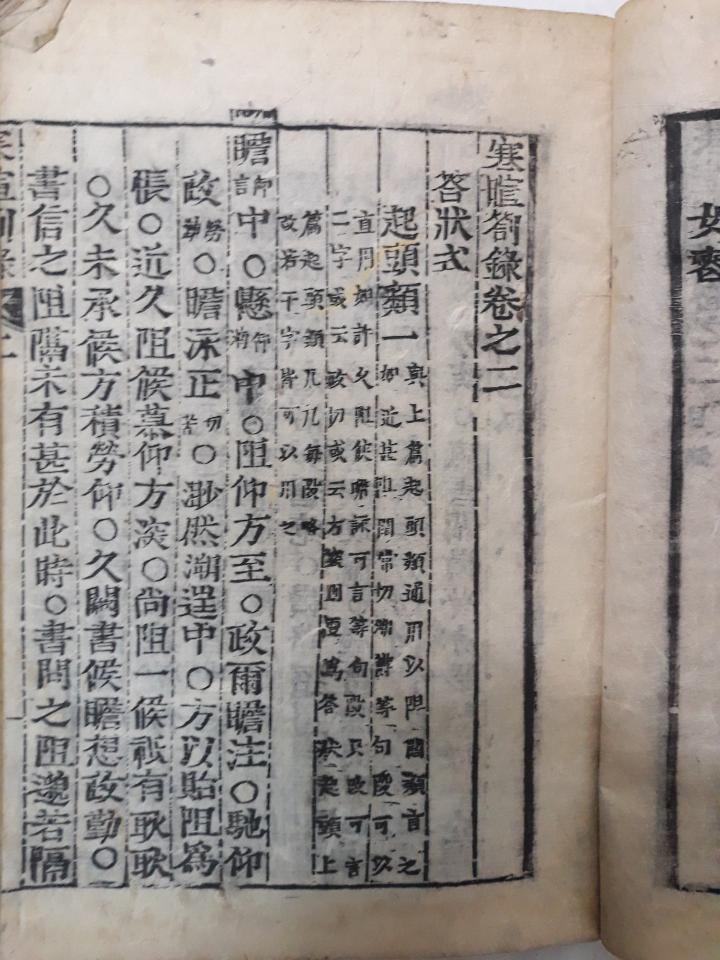 寒暄劄錄卷之二
答狀式
起頭類一
與上篇起頭類通用以阻閡類言之
如近甚阻閡常切漸歎等句段可以
直用如許久阻候瞻詠可言等句段只改可言
二字或云政切或云方深則便爲答狀起頭上
篇起頭類凡几每段略
改若干字皆可以用之
瞻仰言中○懸仰中○阻仰方至○政爾瞻注○馳仰
政勞○瞻泳正切苦○渺然溯逞中○方以貽阻爲
悵○近久阻候慕仰方深○尚阻一候秪有耿耿
○久未承候方積勞仰○久闕書候瞻想政勤○
書信之阻隔未有甚於此時○書問之阻邈若隔
女